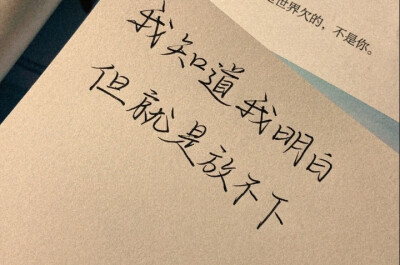 世界欠的，不是你。
我知道我明白
但就是放不下